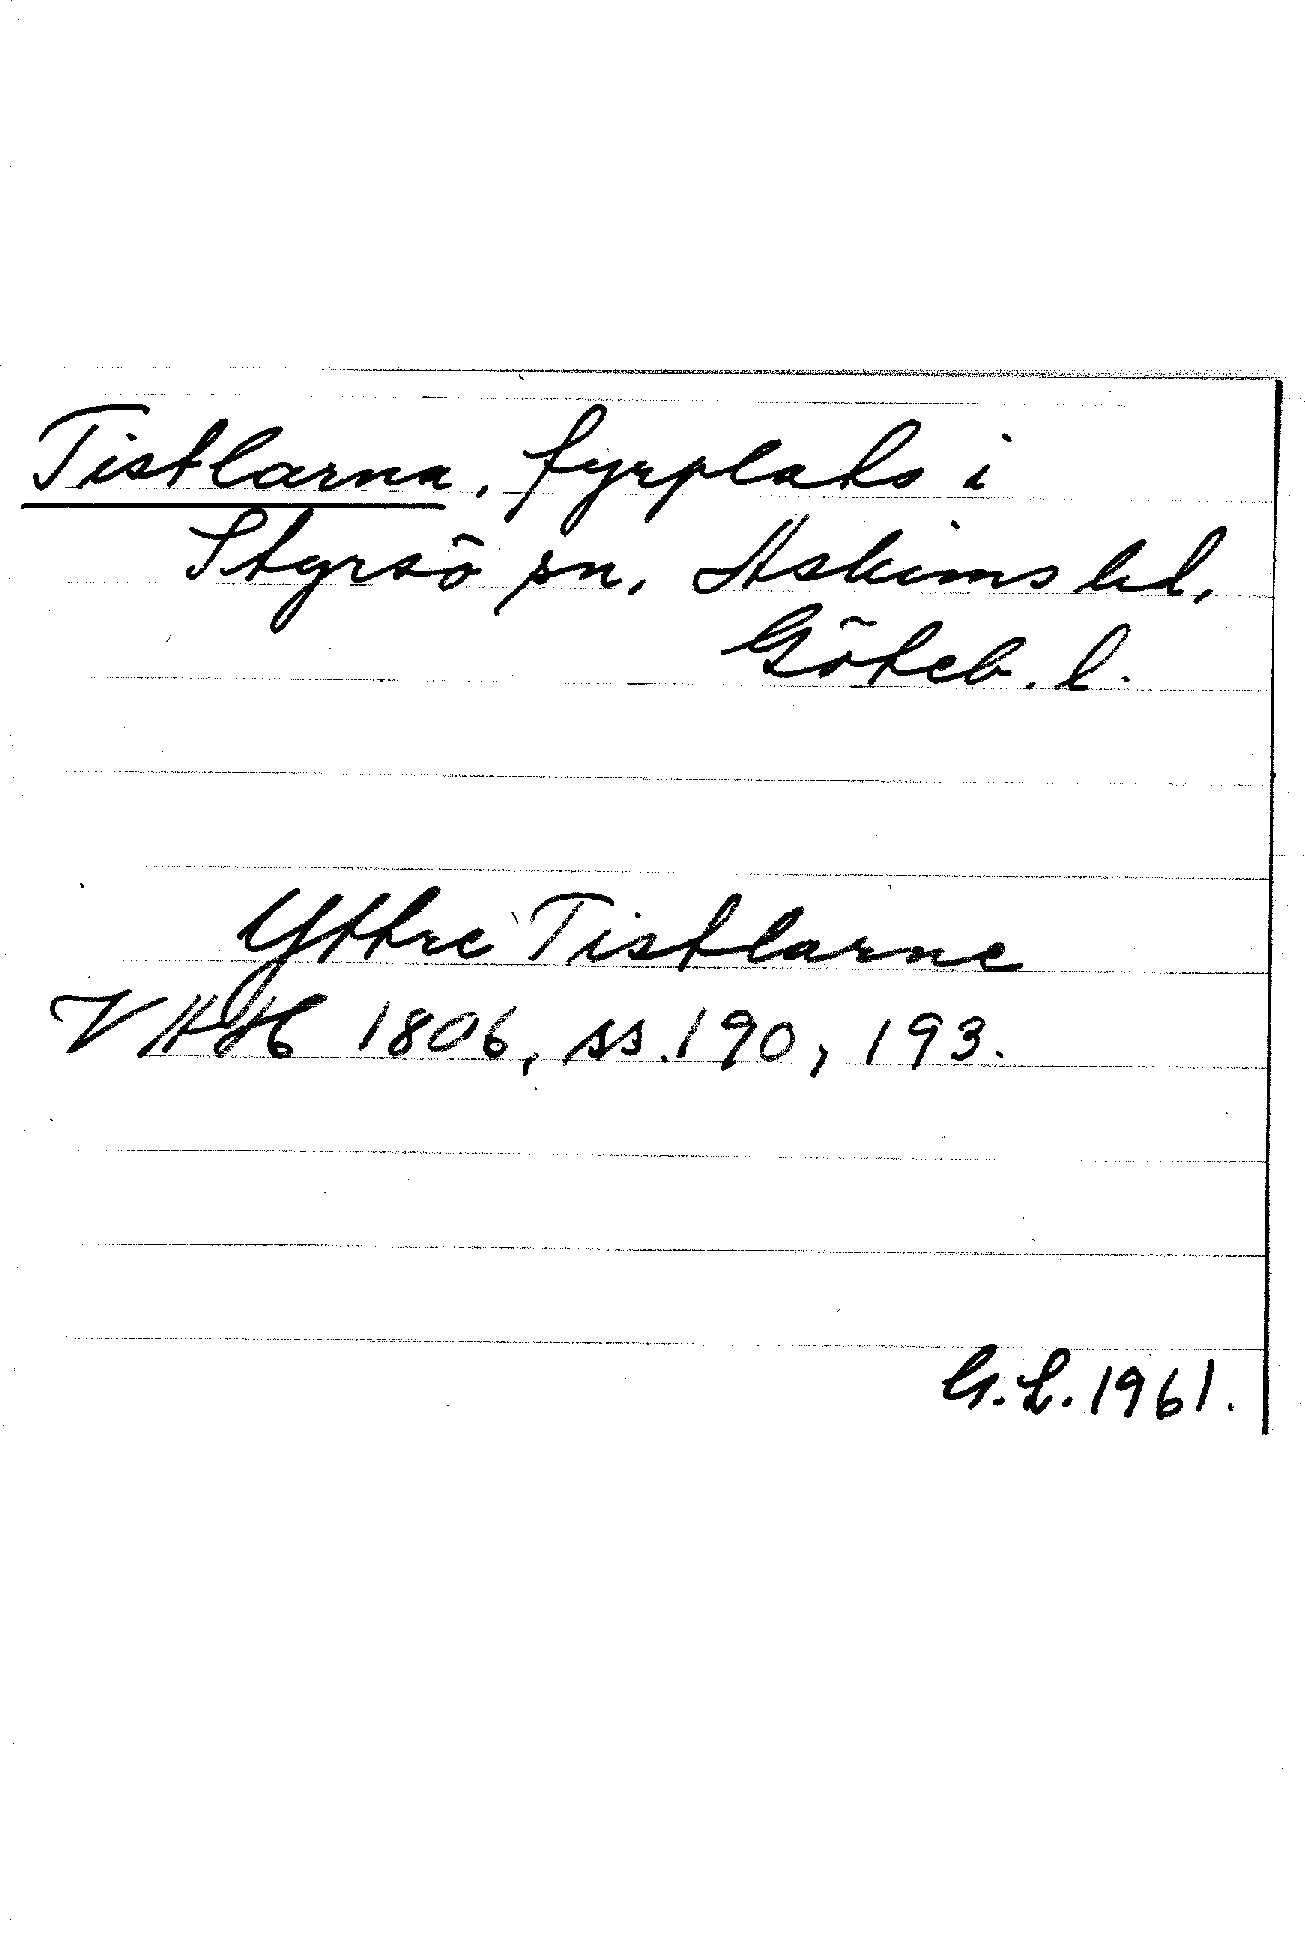 Tistlarna, fyrplats i
Styrsö sn, Askims hd,
Göteb. l.
Yttre Tistlarne
VAH 1806, ss. 190, 193.
G.L. 1961.